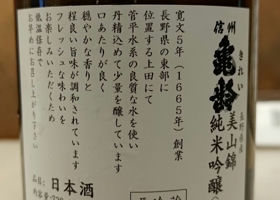 信州
亀齢
きれい
長野県産
美山錦
純米吟醸
寛文5年(1665年)創業
長野県の東部に
位置する上田にて
菅平水系の良質な水を使い
丹精込めて少量を醸しています
口あたりが良く
穏やかな香りと
程良い旨味が調和されています
フレッシュな味わいを
お楽しみいただくため
低温保存で
お早めにお召し上がり下さい
品目:日本酒